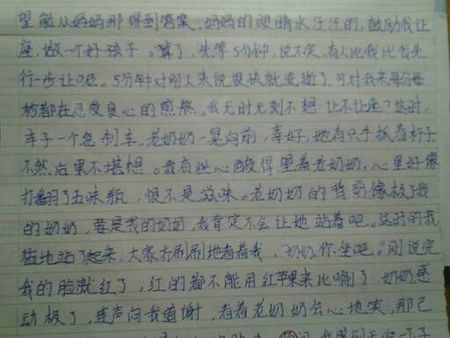 望能从妈妈那得到答案,妈妈的眼睛水汪汪的,鼓励我让
座,做一个好孩子。算了,先等5分钟,说不定,有人比我比我先
行一步让呢。5分钟对别人来说很快就流逝了,可对我来每分每
秒都在忍受良心的煎熬。我无时无刻不想,让不让座?这时,
车子一个急刹车,老奶奶一晃向前,幸好,她有只手抓着杆子,
不然后果不堪想。我有些心酸得望着老奶奶,心里好像
打翻了五味瓶,很不是滋味。老奶奶的背影像极了我
的奶奶,要是我的奶奶,我肯定不会让她站着吧。这时的我
猛地站了起来,大家齐刷刷地看着我,“奶奶,你坐吧。”刚说完
我的脸就红了,红的都不能用红苹果来比喻了。奶奶感
动极了,连声向我道谢,看着老奶奶会心地笑,那已